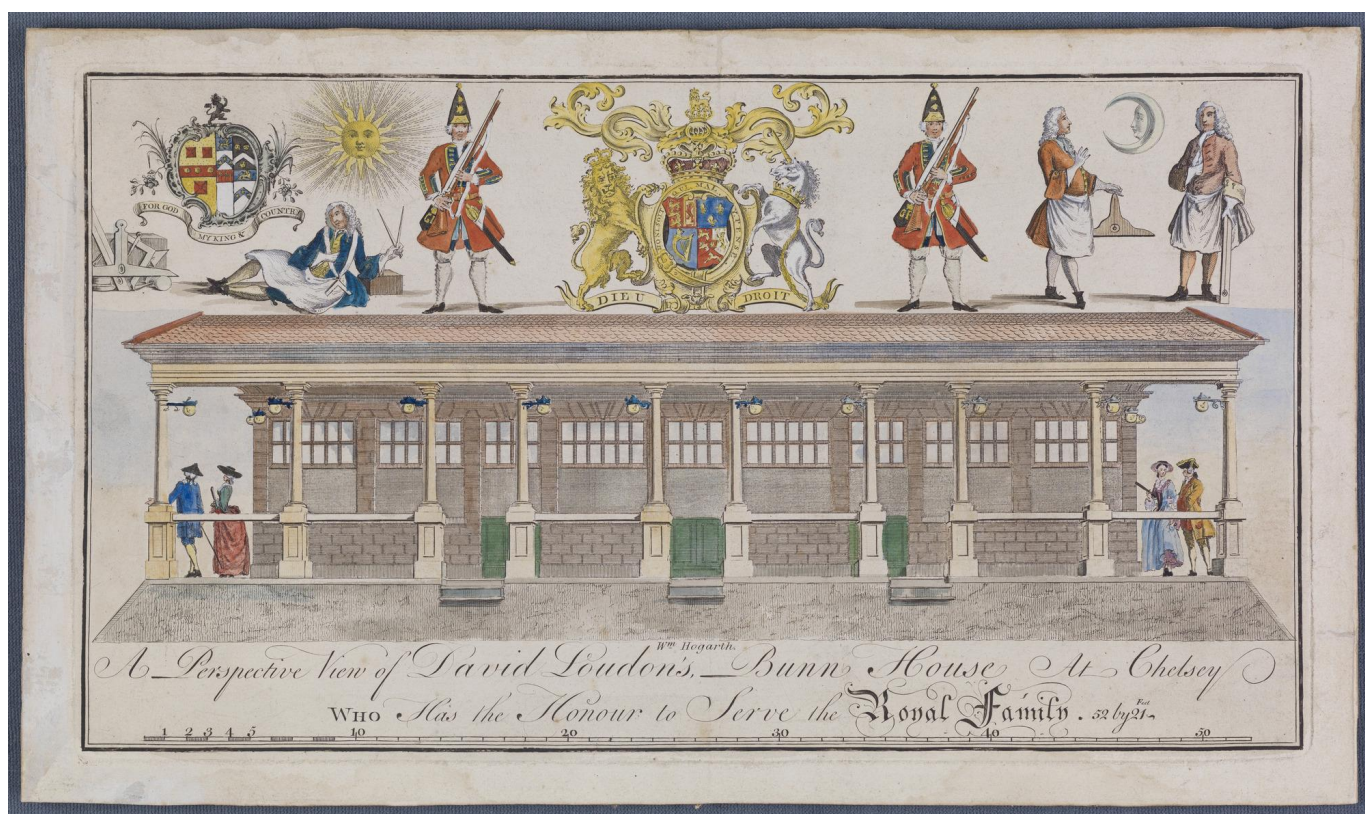 FOR GOD
MY KING &
COUNTRY
DIEU
DROIT
Wm. Hogarth.
A Perspective View of David Loudon's, Bunn House At Chelsey
WHO Has the Honour to Serve the Royal Family. 52 by 21 Feet
1 2 3 4 5 10 20 30 40 50